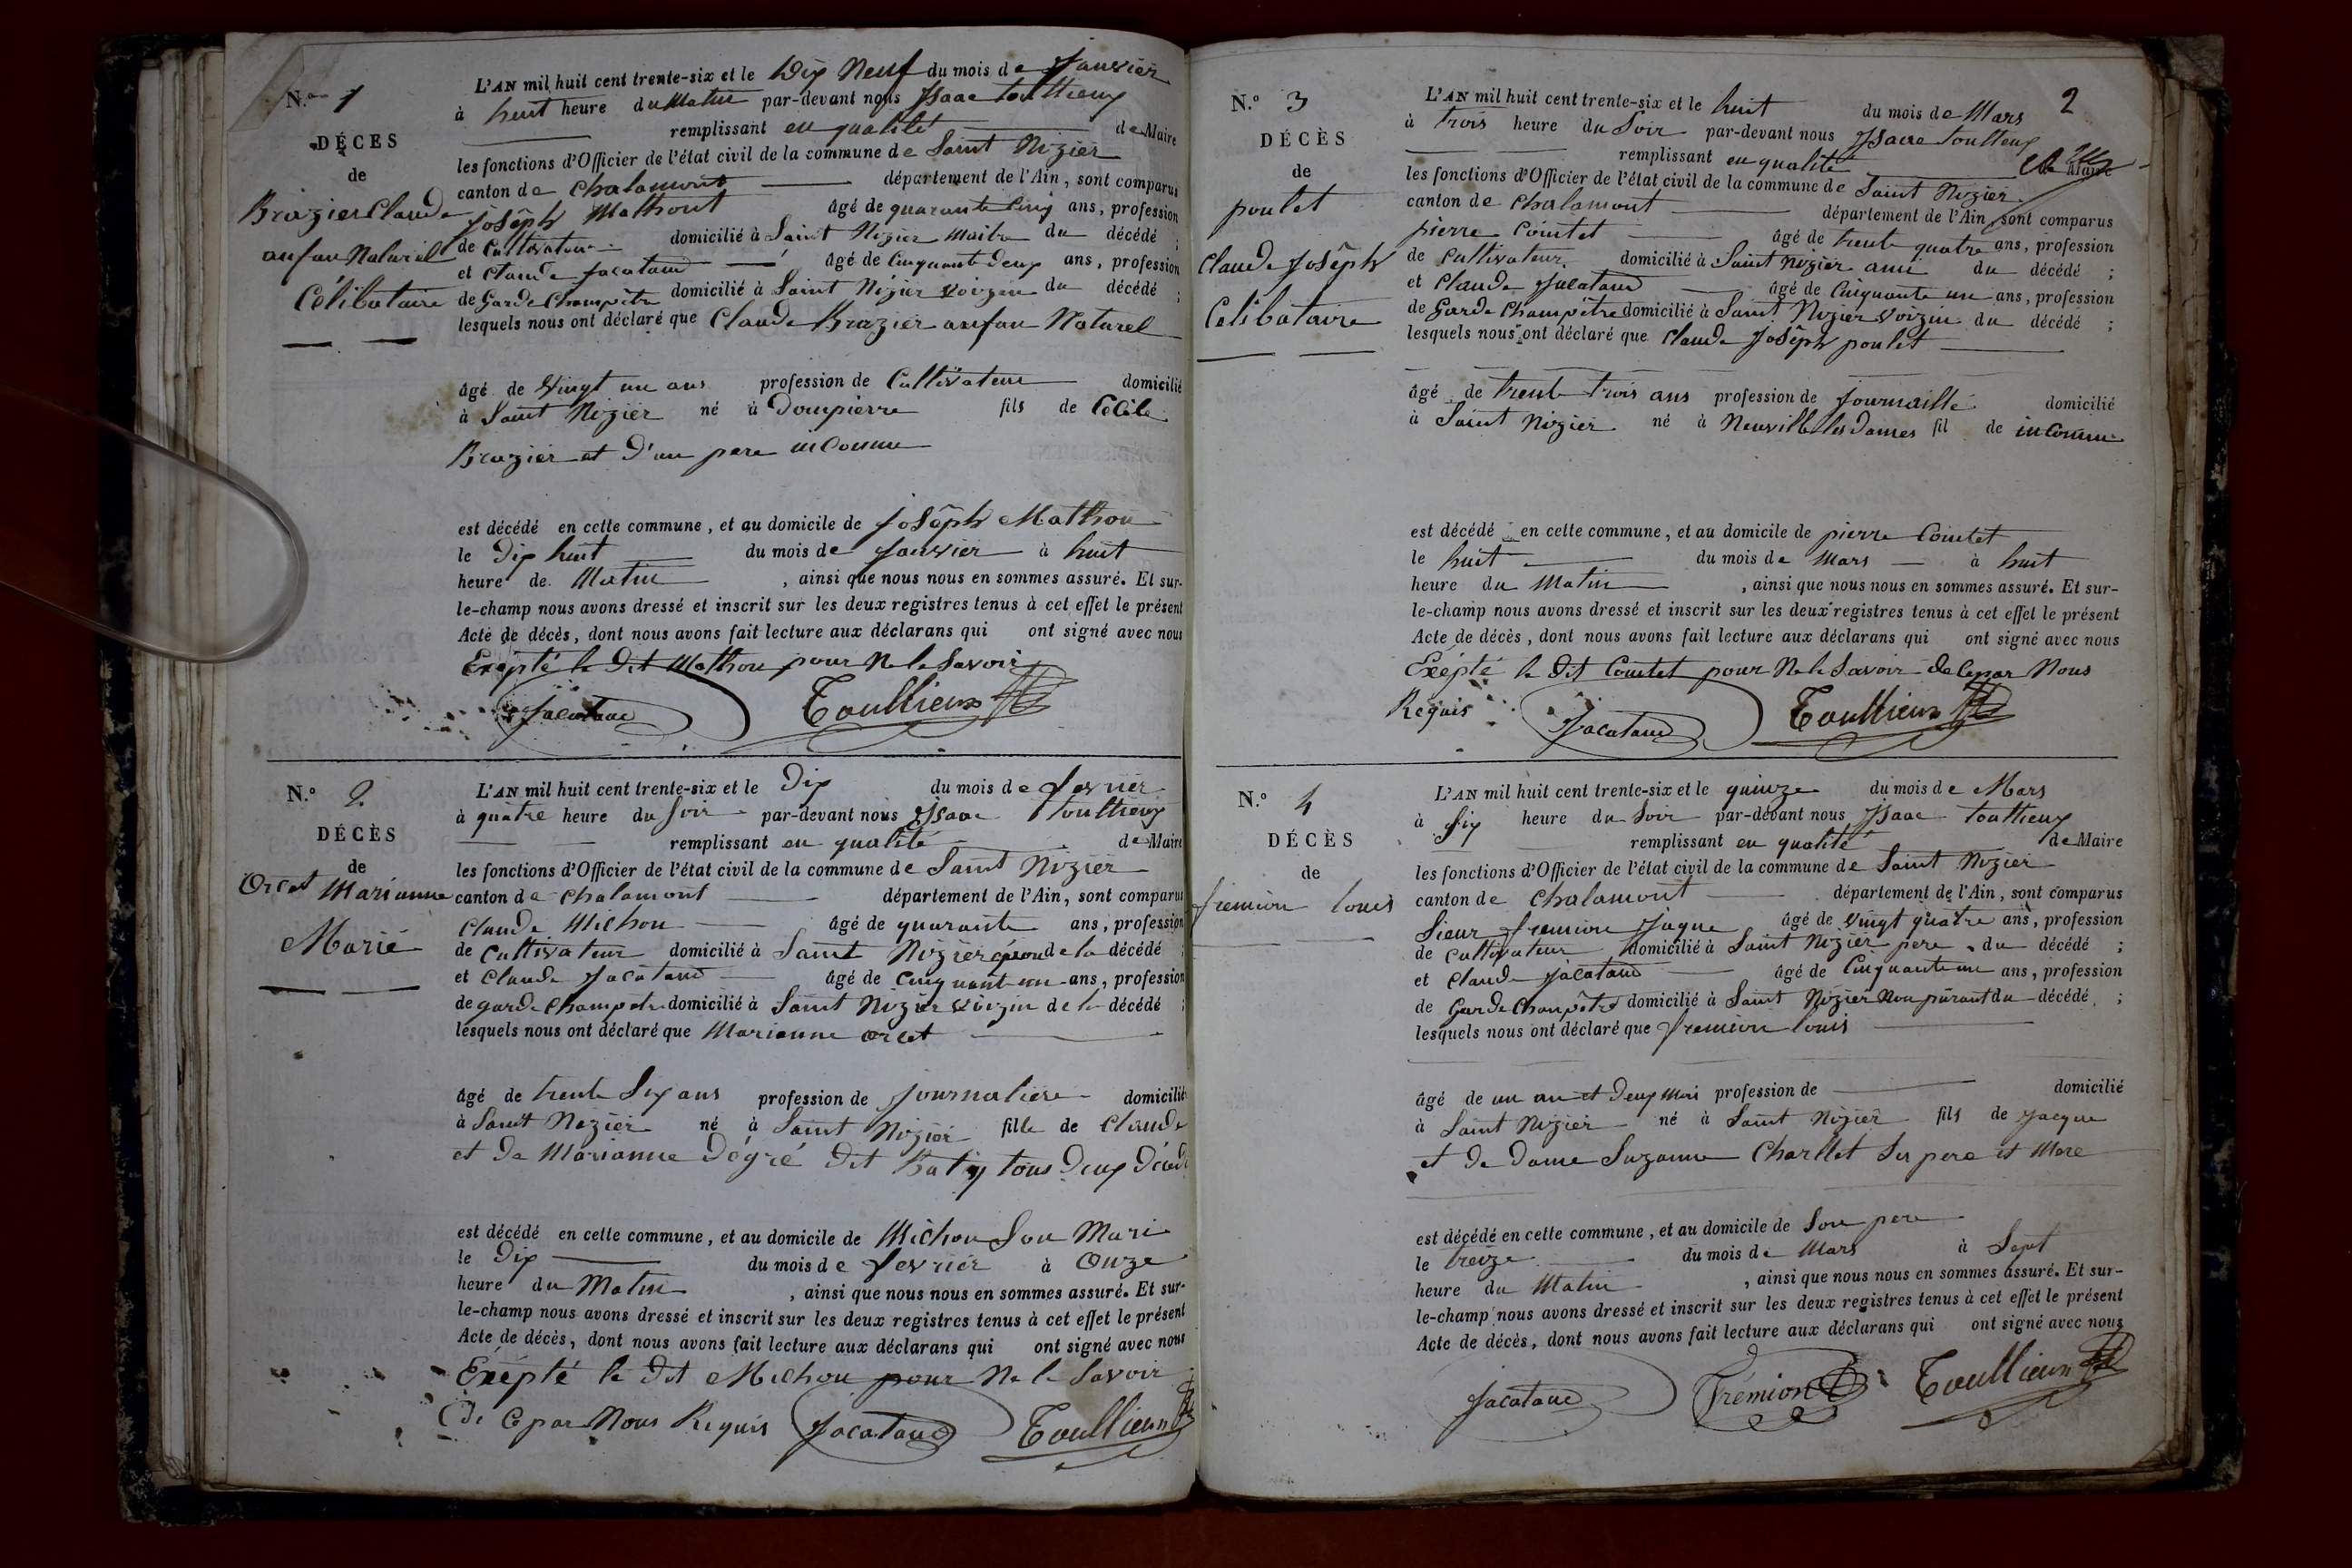 N.° 1
DÉCES
de
Brazier Claude
anfan Naturel
Célibataire
L'AN mil huit cent trente-six et le Dix Neuf du mois de Janvier
à huit heure du Matin par-devant nous Isaac Toullieux
remplissant en qualité de Maire
les fonctions d'Officier de l'état civil de la commune de Saint Nizier
canton de Chalamont département de l'Ain, sont comparus
Joséph Mathont âgé de quarante Cinq ans, profession
de Cultivateur domicilié à Saint Nizier Maitre du décédé ;
et Claude Jacataud âgé de Cinquant Deux ans, profession
de Garde Champêtre domicilié à Saint Nizier voizin du décédé ;
lesquels nous ont déclaré que Claude Brazier anfan Naturel
âgé de Vingt un ans profession de Cultivateur domicilié
à Saint Nizier né à Dompierre fils de Cécile
Brazier et D'un pere inConnu
est décédé en cette commune, et au domicile de Joséph Mathon
le Dix huit du mois de Janvier à huit
heure de Matin , ainsi que nous nous en sommes assuré. Et sur-
le-champ nous avons dressé et inscrit sur les deux registres tenus à cet effet le présent
Acte de décès, dont nous avons fait lecture aux déclarans qui ont signé avec nous
Exépté le Dit Mathon pour Ne le Savoir
Jacataud Toullieux
N.° 2
DÉCÈS
de
Orcet Marianne
Marié
L'AN mil huit cent trente-six et le Dix du mois de fevrier
à quatre heure du Soir par-devant nous Isaac Toullieux
remplissant en qualité de Maire
les fonctions d'Officier de l'état civil de la commune de Saint Nizier
canton de Chalamont département de l'Ain, sont comparus
Claude Michon âgé de quarante ans, profession
de Cultivateur domicilié à Saint Nizier de la décédé ;
et Claude Jacataud âgé de Cinquant un ans, profession
de garde Champetre domicilié à Saint Nizier voizin de la décédé ;
lesquels nous ont déclaré que Marianne orcet
âgé de trente Six ans profession de Journaliere domicilié
à Saint Nizier né à Saint Nizier fille de Claude
et De Marianne Dégré Dit tous Deux Décédé
est décédé en cette commune, et au domicile de Michon Son Mari
le Dix du mois de fevrier à Onze
heure du Matin , ainsi que nous nous en sommes assuré. Et sur-
le-champ nous avons dressé et inscrit sur les deux registres tenus à cet effet le présent
Acte de décès, dont nous avons fait lecture aux déclarans qui ont signé avec nous
Exépté le Dit Michon pour Ne le Savoir
De Ce par Nous Requis Jacataud Toullieux
2
N.° 3
DÉCÈS
de
poulet
Claude Joséph
Célibataire
L'AN mil huit cent trente-six et le huit du mois de Mars
à trois heure du Soir par-devant nous Isaac Toullieux
remplissant en qualité de Maire
les fonctions d'Officier de l'état civil de la commune de Saint Nizier
canton de Chalamont département de l'Ain, sont comparus
pierre Comtet âgé de trente quatre ans, profession
de Cultivateur domicilié à Saint Nizier ami du décédé ;
et Claude Jacataud âgé de Cinquante un ans, profession
de Garde Champêtre domicilié à Saint Nizier voizin du décédé ;
lesquels nous ont déclaré que Claude Joséph poulet
âgé de trente trois ans profession de Journaillé domicilié
à Saint Nizier né à Neuville les Dames fil de inConnu
est décédé en cette commune, et au domicile de pierre Comtet
le huit du mois de Mars à huit
heure du Matin , ainsi que nous nous en sommes assuré. Et sur-
le-champ nous avons dressé et inscrit sur les deux registres tenus à cet effet le présent
Acte de décès, dont nous avons fait lecture aux déclarans qui ont signé avec nous
Exépté le Dit Comtet pour Ne le Savoir de Ce par Nous
Requis Jacataud Toullieux
N.° 4
DÉCÈS
de
fremion louis
L'AN mil huit cent trente-six et le quinze du mois de Mars
à Six heure du Soir par-devant nous Isaac Toullieux
remplissant en qualité de Maire
les fonctions d'Officier de l'état civil de la commune de Saint Nizier
canton de Chalamont département de l'Ain, sont comparus
Sieur fremion Jaque âgé de Vingt quatre ans, profession
de Cultivateur domicilié à Saint Nizier pere du décédé ;
et Claude Jacataud âgé de Cinquante un ans, profession
de Garde Champêtre domicilié à Saint Nizier Non parant du décédé ;
lesquels nous ont déclaré que fremion louis
âgé de un an et Deux Mois profession de domicilié
à Saint Nizier né à Saint Nizier fils de Jacque
et De Dame Suzanne Charllet Ses pere et Mere
est décédé en cette commune, et au domicile de Son pere
le treize du mois de Mars à Sept
heure du Matin , ainsi que nous nous en sommes assuré. Et sur-
le-champ nous avons dressé et inscrit sur les deux registres tenus à cet effet le présent
Acte de décès, dont nous avons fait lecture aux déclarans qui ont signé avec nous
Jacataud Frémion Toullieux